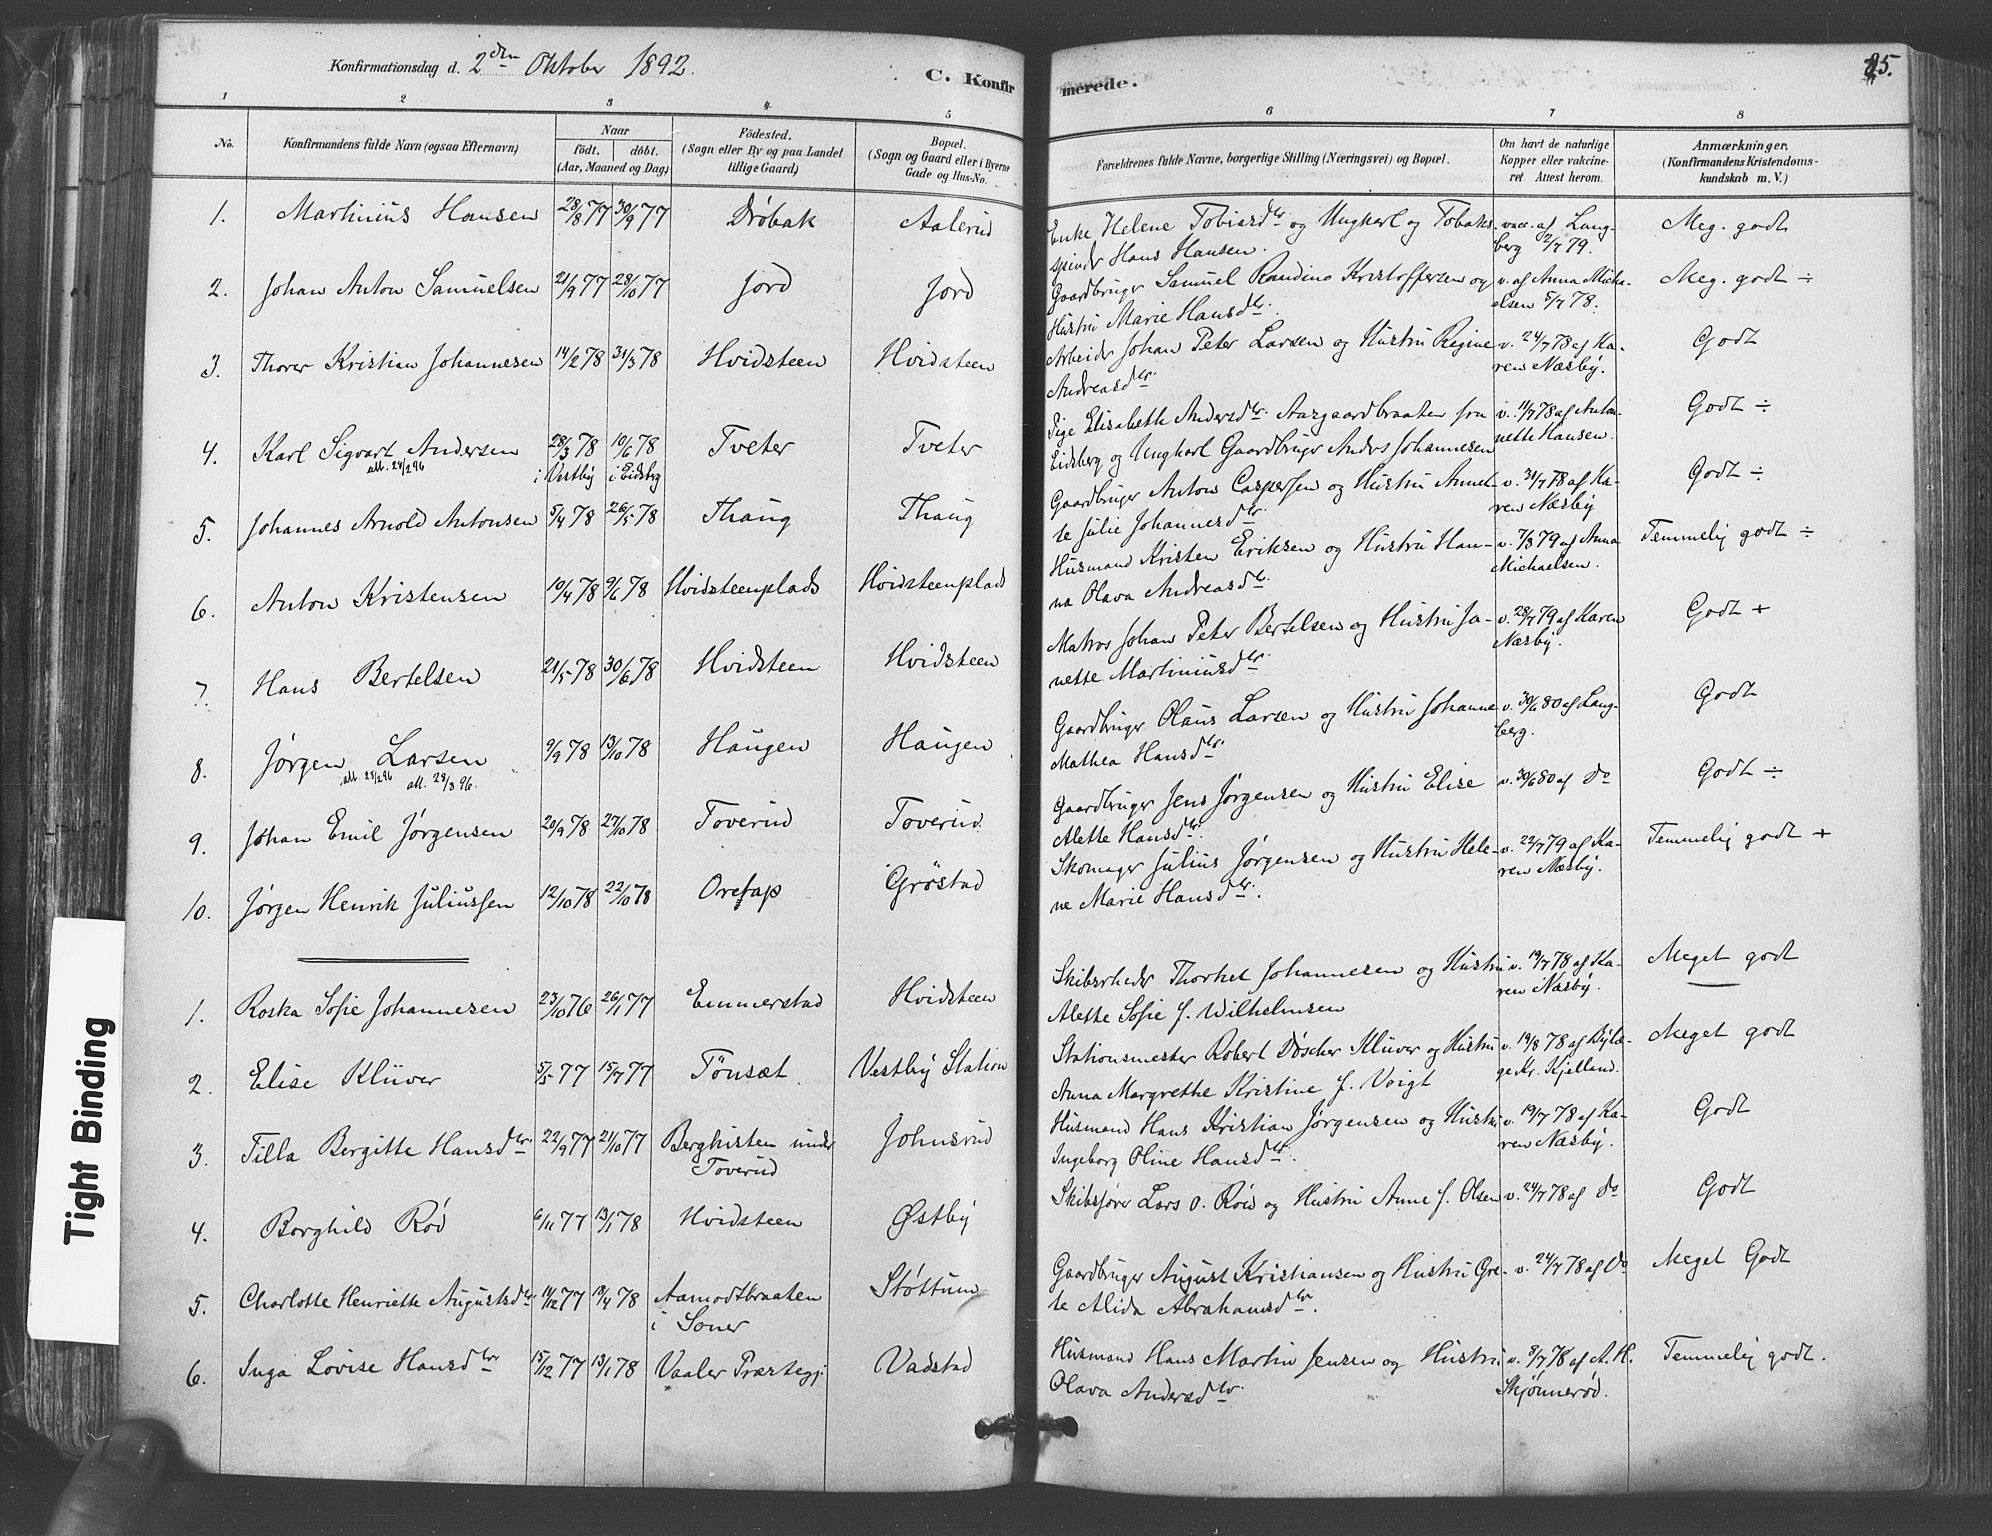 Konfirmationsdag d. 2den Oktober 1892.
C. Konfir
merede.
85.
1 2 3 4 5 6 7 8
No.
Konfirmandens fulde Navn (ogsaa Efternavn)
Naar
födt. döbt.
(Aar, Maaned og Dag)
Födested.
(Sogn eller By og paa Landet
tillige Gaard)
Bopæl.
(Sogn og Gaard eller i Byerne
Gade og Hus-No.
Forældrenes fulde Navne, borgerlige Stilling (Næringsvei) og Bopæl.
Om havt de naturlige
Kopper eller vakcine-
ret. Attest herom.
Anmærkninger.
(Konfirmandens Kristendoms-
kundskab m. V.)
1. Martinius Hansen 28/8 77 30/9 77 Drøbak Aalerud Enke Helene Tobiasdtr og Ungkarl og Tobaks- vacc. af Lang- Meg. godt
spinder Hans Hansen. berg 2/7 79.
2. Johan Anton Samuelsen 21/9 77 28/10 77 Jord Jord Gaardbruger Samuel Randino Kristoffersen og v. af Anna Micha- Meg. godt ÷
Hustru Marie Hansdtr. elsen 5/7 78.
3. Thorer Kristian Johannesen 14/2 78 31/3 78 Hvidsteen Hvidsteen Arbeider Johan Peter Larsen og Hustru Regine v. 24/7 78 af Ka- Godt
Andreasdtr. ren Næsby.
4. Karl Sigvart Andersen 28/3 78 10/6 78 Tveter Tveter Pige Elisabeth Andersdtr. Aargaardbraaten fra v. 11/7 78 af Anto- Godt ÷
att. 28/2 96 i Vestby i Eidsberg Eidsberg og Ungkarl Gaardbruger Anders Johannesen nette Hansen.
5. Johannes Arnold Antonsen 5/4 78 26/5 78 Thaug Thaug Gaardbruger Anton Caspersen og Hustru Annet- v. 31/7 78 af Ka- Godt ÷
te Julie Johannesdtr. ren Næsby
6. Anton Kristensen 10/4 78 9/6 78 Hvidsteenplads Hvidsteenplads Husmand Kristen Eriksen og Hustru Han- v. 7/8 79 af Anna Temmelig godt ÷
na Olava Andreasdtr. Michaelsen.
7. Hans Bertelsen 21/5 78 30/6 78 Hvidsteen Hvidsteen Matros Johan Peter Bertelsen og Hustru Ja- v. 28/7 79 af Karen Godt +
nette Martiniusdtr. Næsby.
8. Jørgen Larsen 9/9 78 13/10 78 Haugen Haugen Gaardbruger Olaus Larsen og Hustru Johanne v. 30/6 80 af Lang- Godt
att. 28/2 96 att. 28/3 96. Mathea Hansdtr. berg.
9. Johan Emil Jørgensen 20/9 78 27/10 78 Toverud Toverud Gaardbruger Jens Jørgensen og Hustru Elise v. 30/6 80 af do Godt ÷
Alette Hansdtr.
10. Jørgen Henrik Juliussen 12/10 78 22/10 78 Orefap Grøstad Skomager Julius Jørgensen og Hustru Hele- v. 22/7 79 af Ka- Temmelig godt +
ne Marie Hansdtr. ren Næsby.
1. Roska Sofie Johannesen 23/10 76 26/1 77 Emmerstad Hvidsteen Skibsrheder Thorket Johannesen og Hustru v. 19/7 78 af Ka- Meget godt
Alette Sofie f. Wilhelmsen ren Næsby.
2. Elise Klüver 5/5 77 15/7 77 Tønsæt Vestby Station Stationsmester Robert Døscher Klüver og Hustru v. 19/8 78 af Bylæ- Meget godt
Anna Margrethe Kristine f. Voigt ge Kr. Kjelland.
3. Tilla Bergitte Hansdtr. 22/9 77 21/10 77 Berghisten under Johnsrud Husmand Hans Kristian Jørgensen og Hustru v. 19/7 78 af Ka- Godt
Toverud Ingeborg Oline Hansdtr. ren Næsby.
4. Borghild Rød 6/11 77 13/1 78 Hvidsteen Østby Skibsfører Lars O. Röed og Hustru Anne f. Olsen v. 24/7 78 af do Godt
5. Charlotte Henriette Augustsdtr 14/12 77 13/4 78 Aamodtbraaten Støttum Gaardbruger August Kristiansen og Hustru Gre- v. 24/7 78 af Do Meget Godt
i Soner te Alida Abrahamsdtr.
6. Inga Lovise Hansdtr 15/12 77 13/1 78 Vaaler Præstegj. Vadstad Husmand Hans Martin Jensen og Hustru v. 8/7 78 af A. H. Temmelig godt.
Olava Andersdtr. Skjønnerød.
Tight Binding